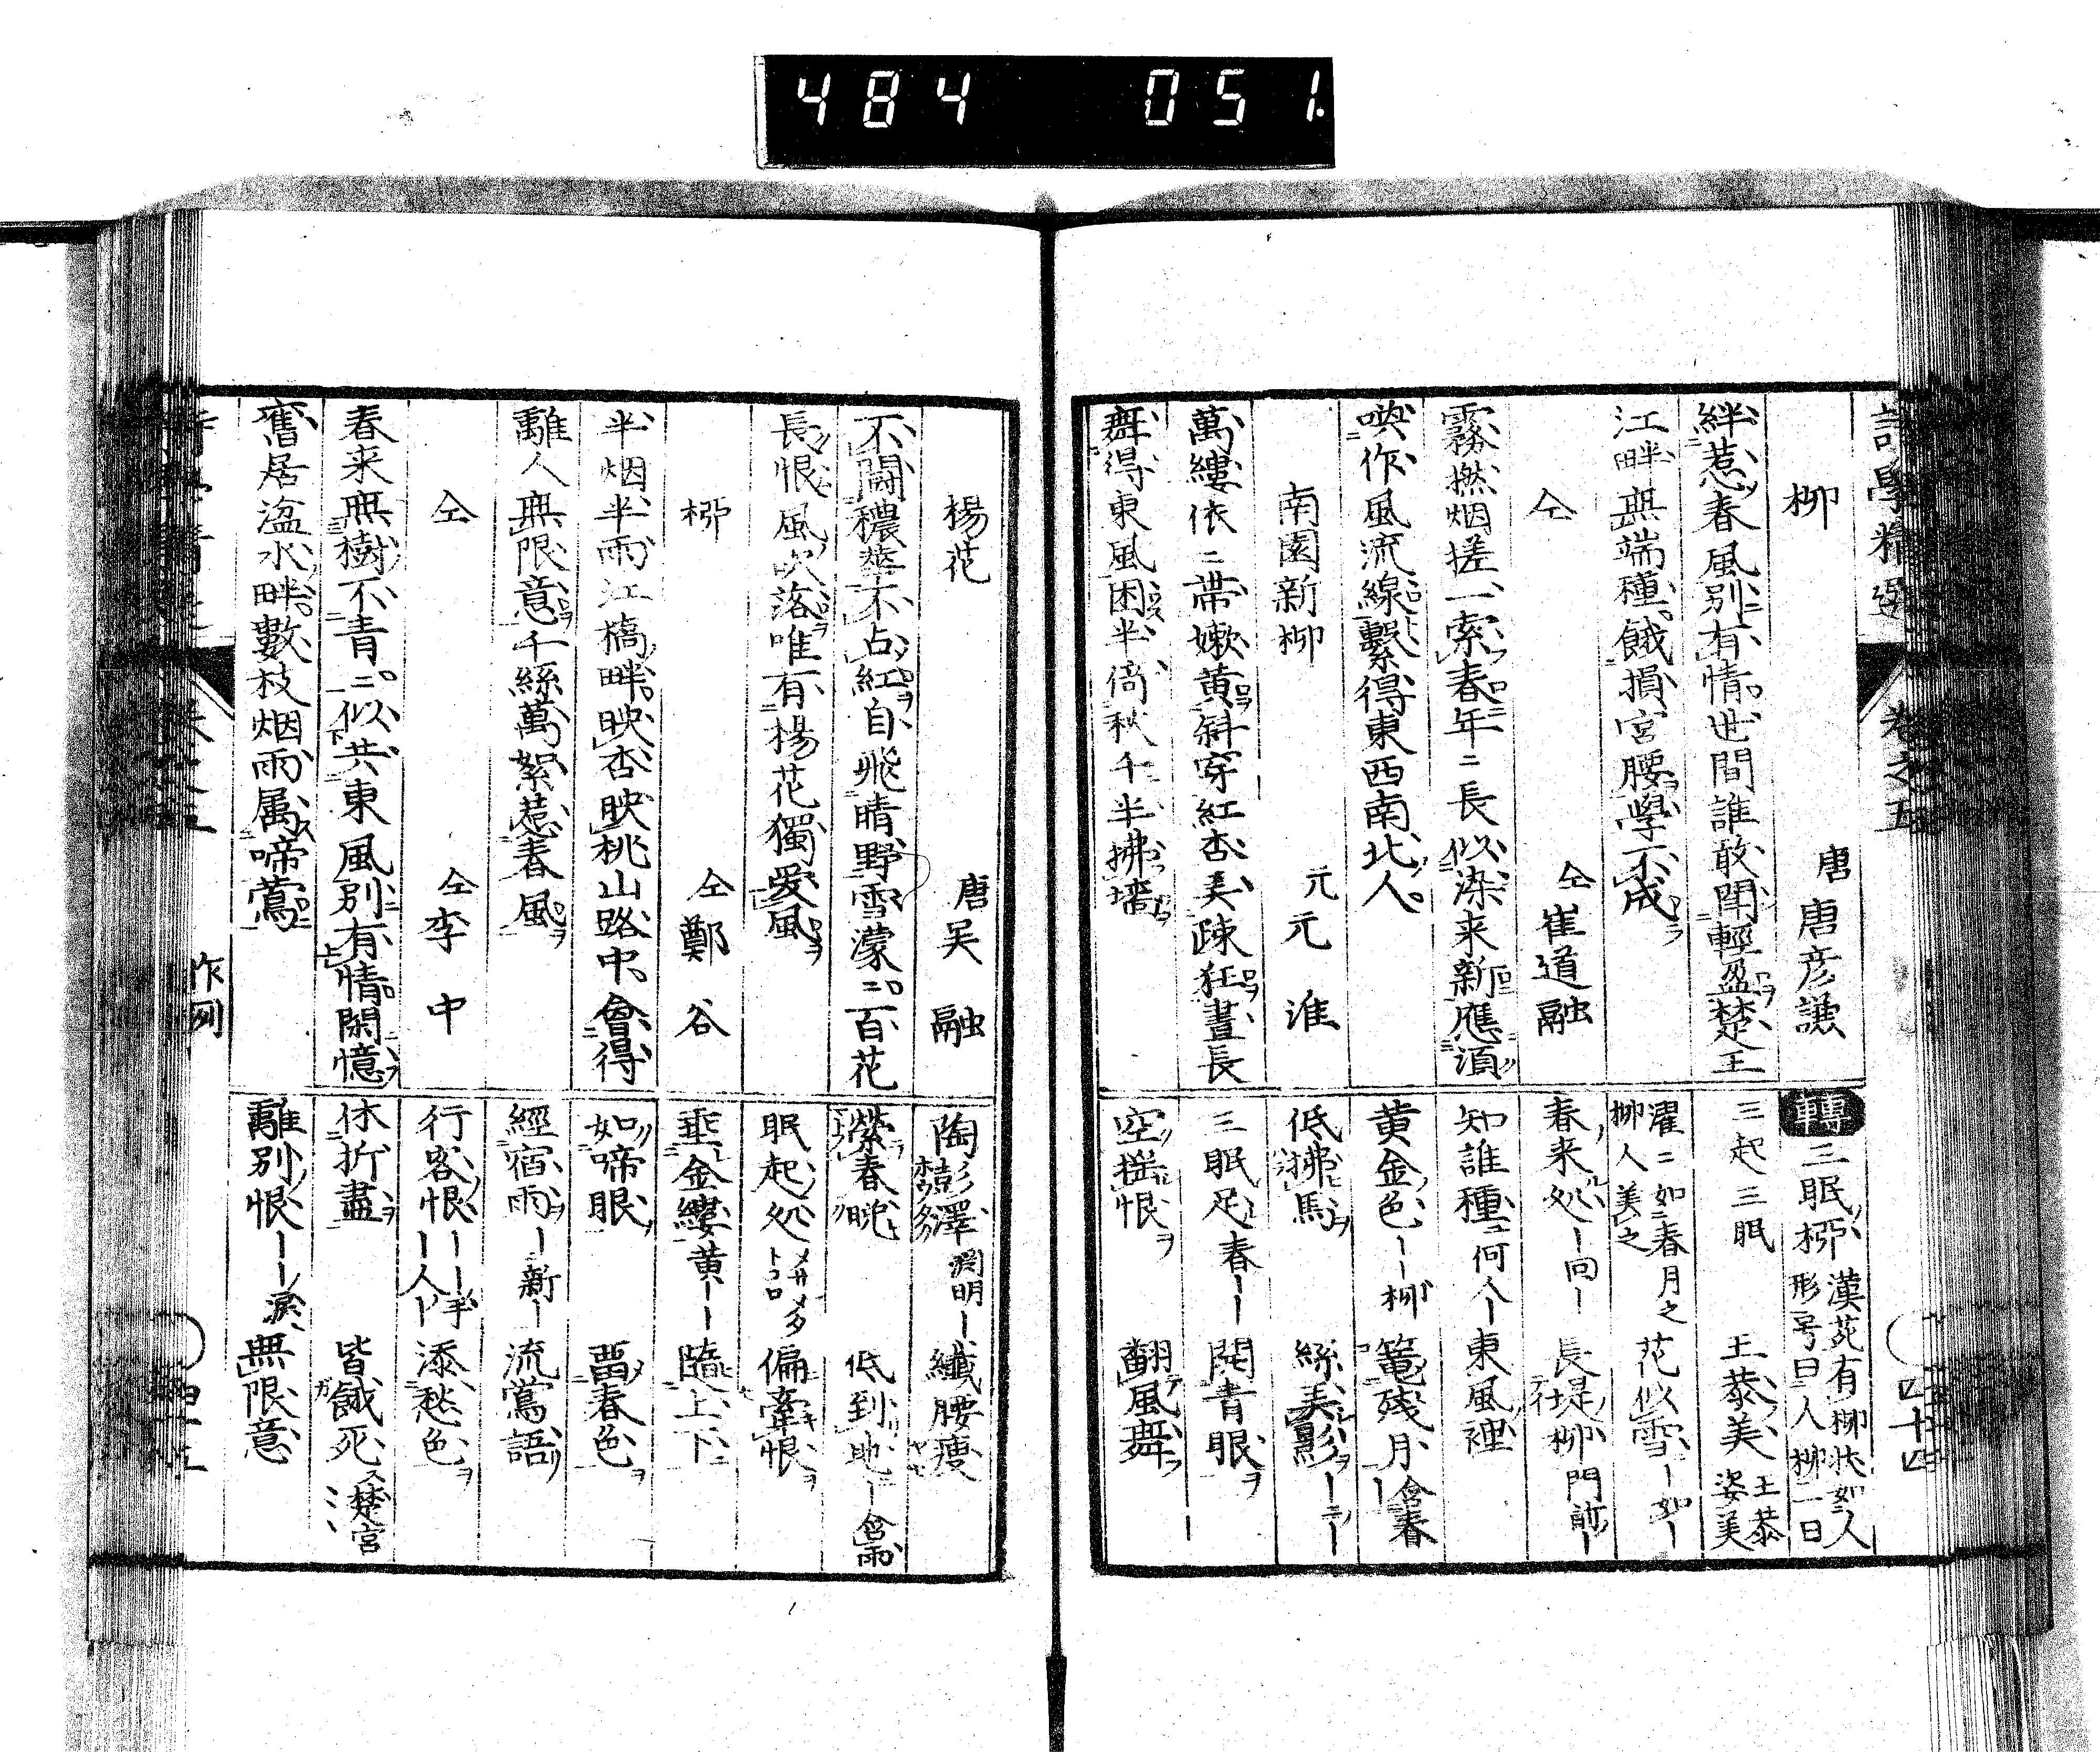 484 051
詩學精選 卷之五
柳 唐唐彦謙
絆惹春風別有情世間誰敢鬪輕盈楚王
江畔無端種餓損宮腰學不成
仝 仝崔道融
霧撚烟搓一索春年〻長似染来新應須
喚作風流線繫得東西南北人
南園新柳 元元淮
萬縷依〻帯嫩黄斜穿紅杏羙疎狂晝長
舞得東風困半倚秋千半拂墻
轉 三眠柳 漢苑有柳状如人
形号曰人柳一日
三起三眠 王恭美 王恭
姿美
濯〻如春月之
柳人美之 花似雪ー如ー
春来処ー向ー 長堤柳 門前ー
知誰種 何人ー 東風裡
黄金色ーー柳 篭残月ー含春
低拂馬 絲美影ーー
三眠足春ーー 開青眼
空揺恨 翻風舞
四十四
楊花 唐吴融
不鬪穠華不占紅自飛晴野雪濛〻百花
長恨風吹落唯有楊花獨愛風
柳 仝鄭谷
半烟半雨江橋畔映杏映桃山路中會得
離人無限意千絲萬絮惹春風
仝 仝李中
春来無樹不青〻似共東風別有情閑憶
舊居湓水畔數枝烟雨属啼鶯
陶彭澤 渕明ー 纎腰痩
縈春晩 低到地ー含雨
眠起処 偏牽恨
垂金縷黄ーー 随上下
如啼眼 畱春色
經宿雨ー新ー 流鶯語
行客恨ーー手
ー人ー 添愁色
休折盡 皆餓死 楚宮
離別恨ーー涙 無限意
作例